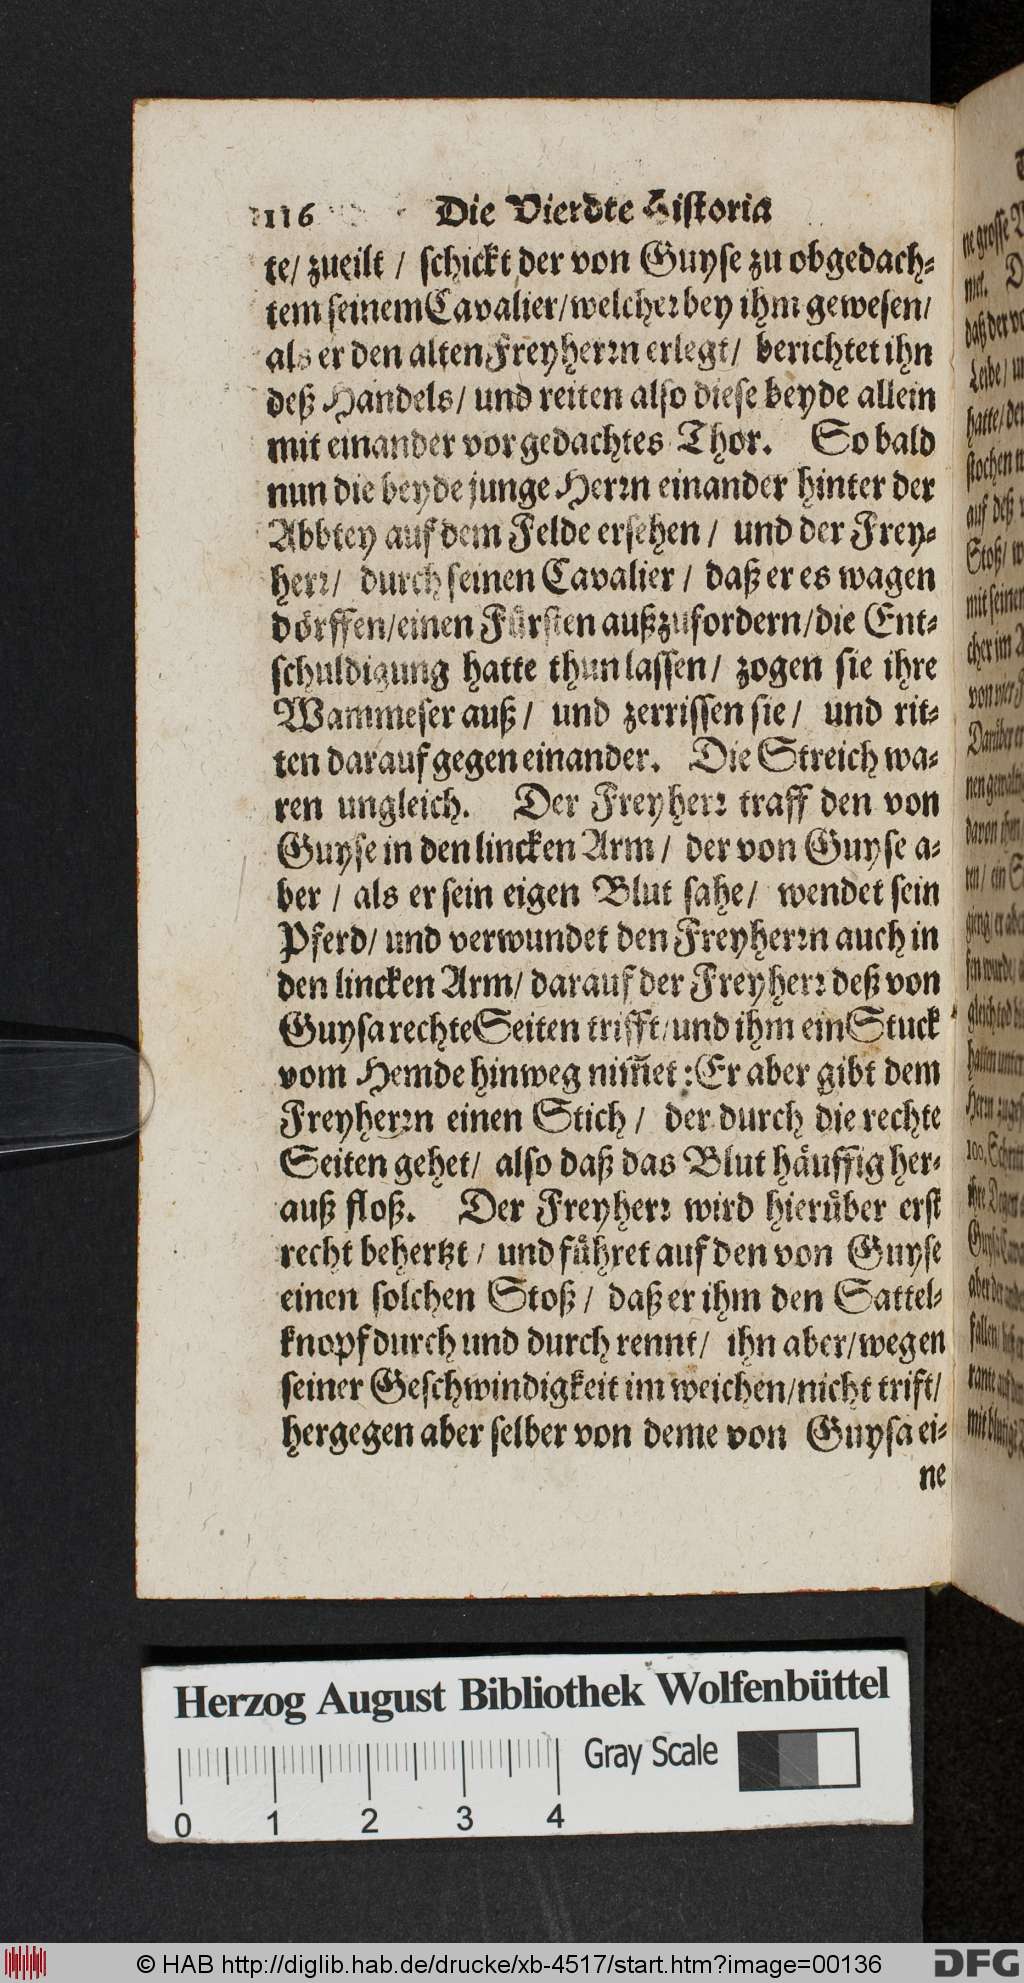 116 Die Vierdte Historia
te/ zueilt / schickt der von Guyse zu obgedach⸗
tem seinem Cavalier/ welcher bey ihm gewesen/
als er den alten Freyherrn erlegt/ berichtet ihn
deß Handels/ und reiten also diese beyde allein
mit einander vor gedachtes Thor. So bald
nun die beyde junge Herrn einander hinter der
Abbtey auf dem Felde ersehen / und der Frey⸗
herr/ durch seinen Cavalier / daß er es wagen
dörffen/ einen Fürsten außzufordern/ die Ent⸗
schuldigung hatte thun lassen/ zogen sie ihre
Wammeser auß / und zerrissen sie / und rit⸗
ten darauf gegen einander. Die Streich wa⸗
ren ungleich. Der Freyherr traff den von
Guyse in den lincken Arm / der von Guyse a⸗
ber / als er sein eigen Blut sahe/ wendet sein
Pferd/ und verwundet den Freyherrn auch in
den lincken Arm/ darauf der Freyherr deß von
Guysa rechte Seiten trifft/ und ihm ein Stuck
vom Hemde hinweg nim̃et : Er aber gibt dem
Freyherrn einen Stich / der durch die rechte
Seiten gehet/ also daß das Blut häuffig her⸗
auß floß. Der Freyherr wird hierüber erst
recht behertzt / und führet auf den von Guyse
einen solchen Stoß / daß er ihm den Sattel⸗
knopf durch und durch rennt/ ihn aber/ wegen
seiner Geschwindigkeit im weichen/ nicht trift/
hergegen aber selber von deme von Guysa ei⸗
ne
Herzog August Bibliothek Wolfenbüttel
Gray Scale
0 1 2 3 4
© HAB http://diglib.hab.de/drucke/xb-4517/start.htm?image=00136
DFG